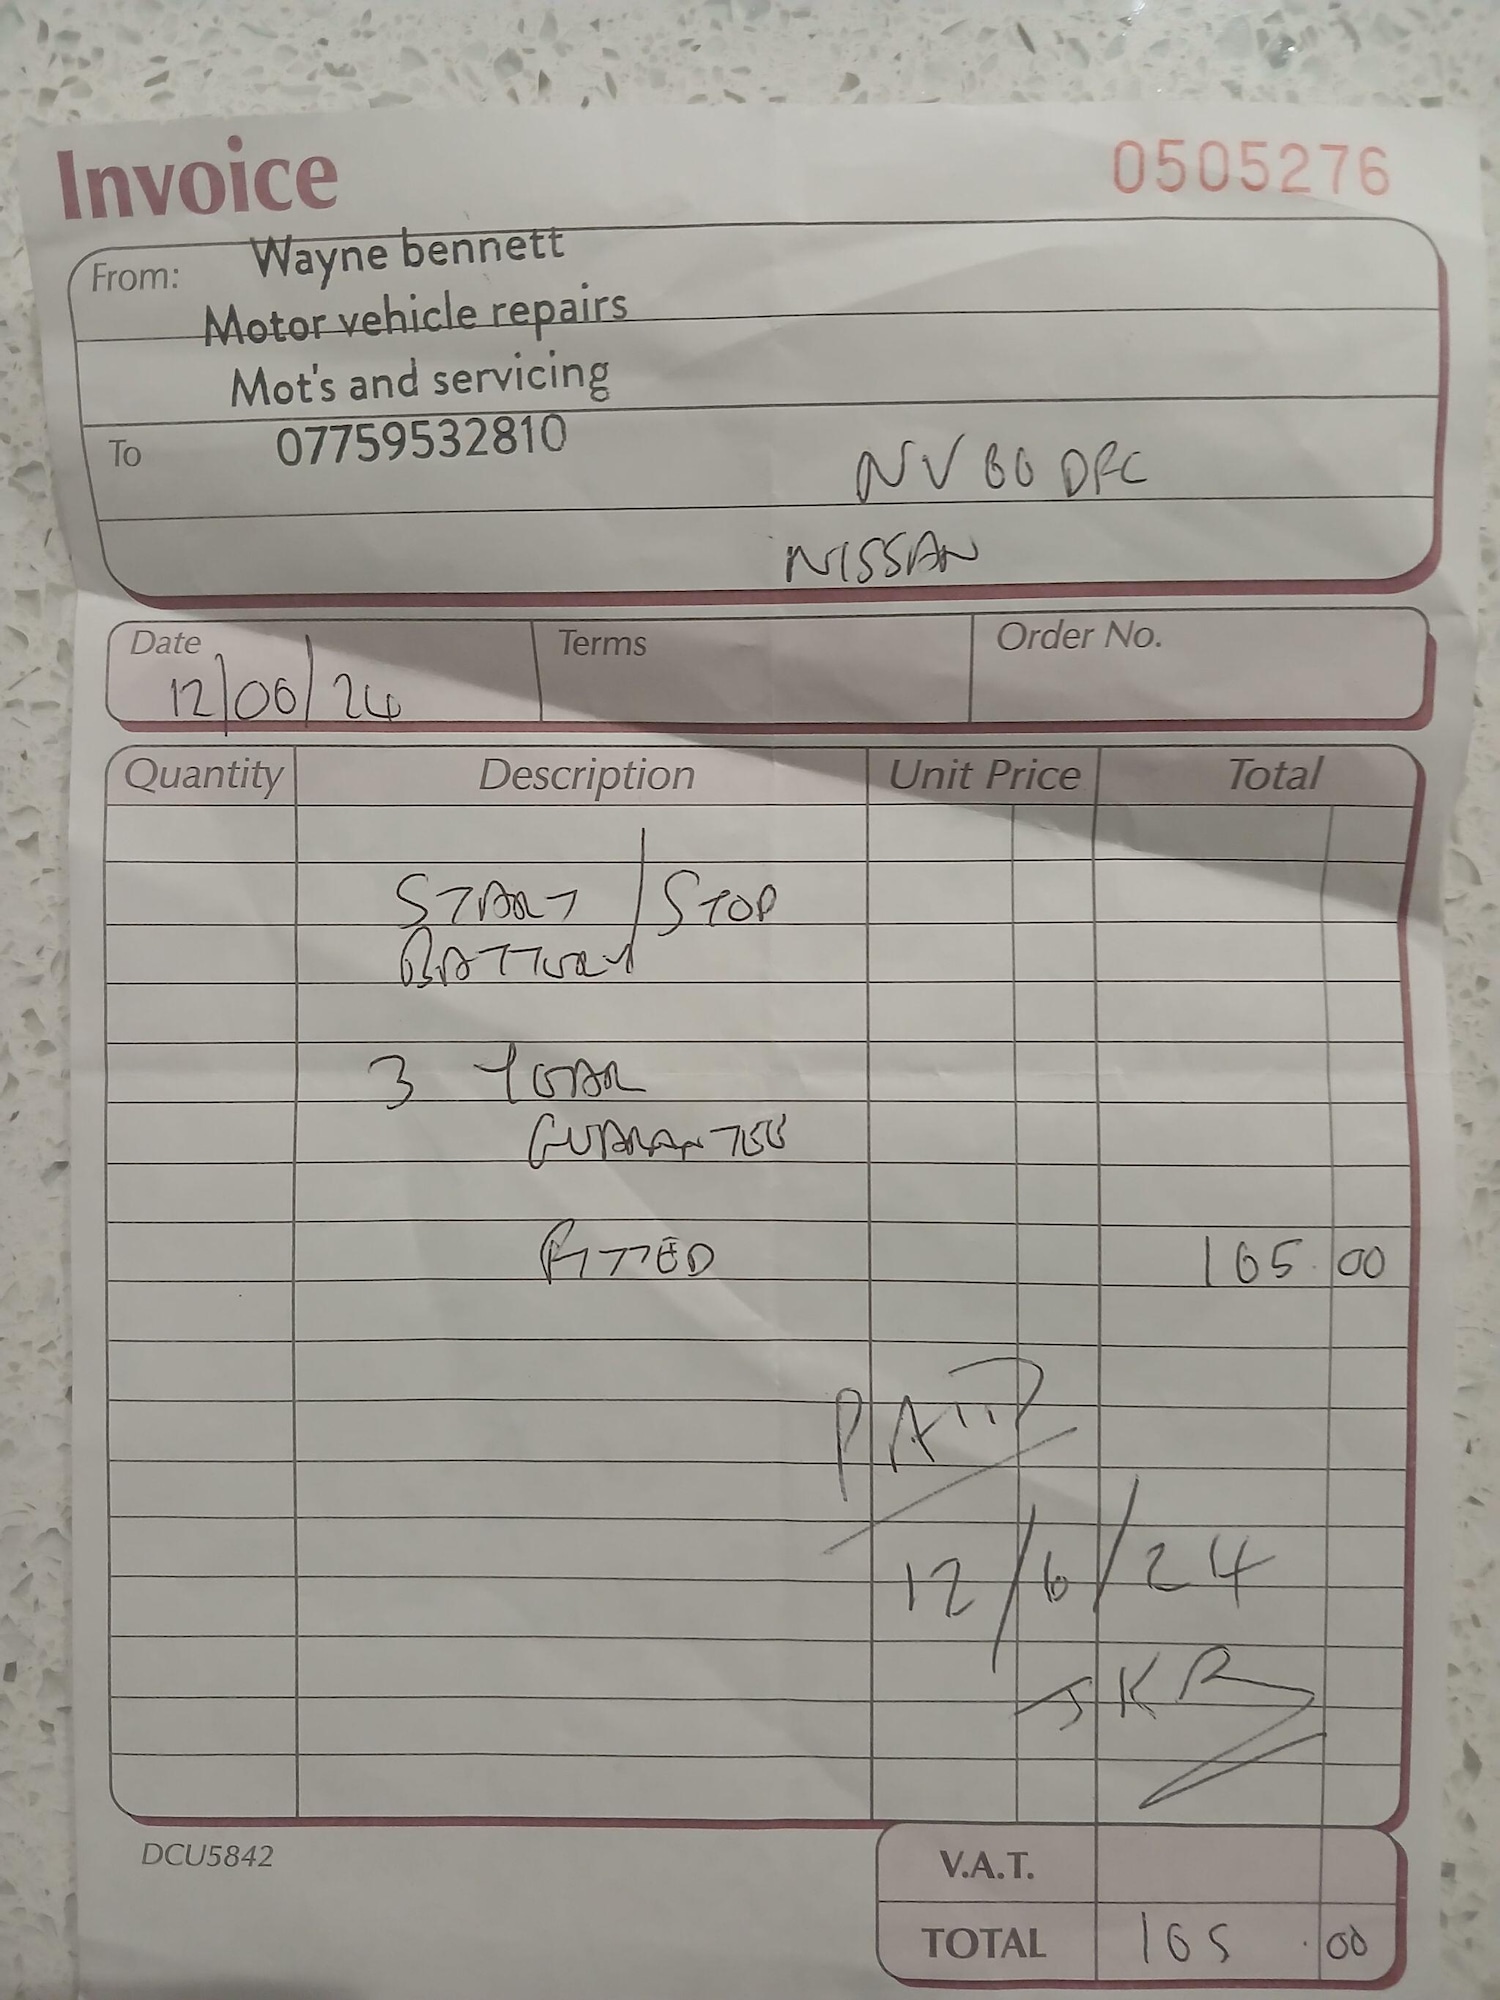 Invoice
0505276
From:
Wayne bennett
Motor vehicle repairs
Mot's and servicing
To
07759532810
NV60 DFC
NISSAN
Date
Terms
Order No.
12/06/24
Quantity Description Unit Price Total
START/STOP
BATTERY
3 YEAR
GUARANTEE
FITTED 165.00
PAID
12/6/24
DCU5842
V.A.T.
TOTAL 165.00